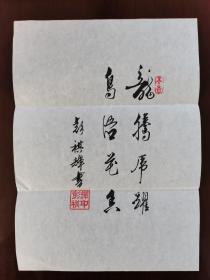 龍騰虎躍
鳥語花香
彭祺輝書